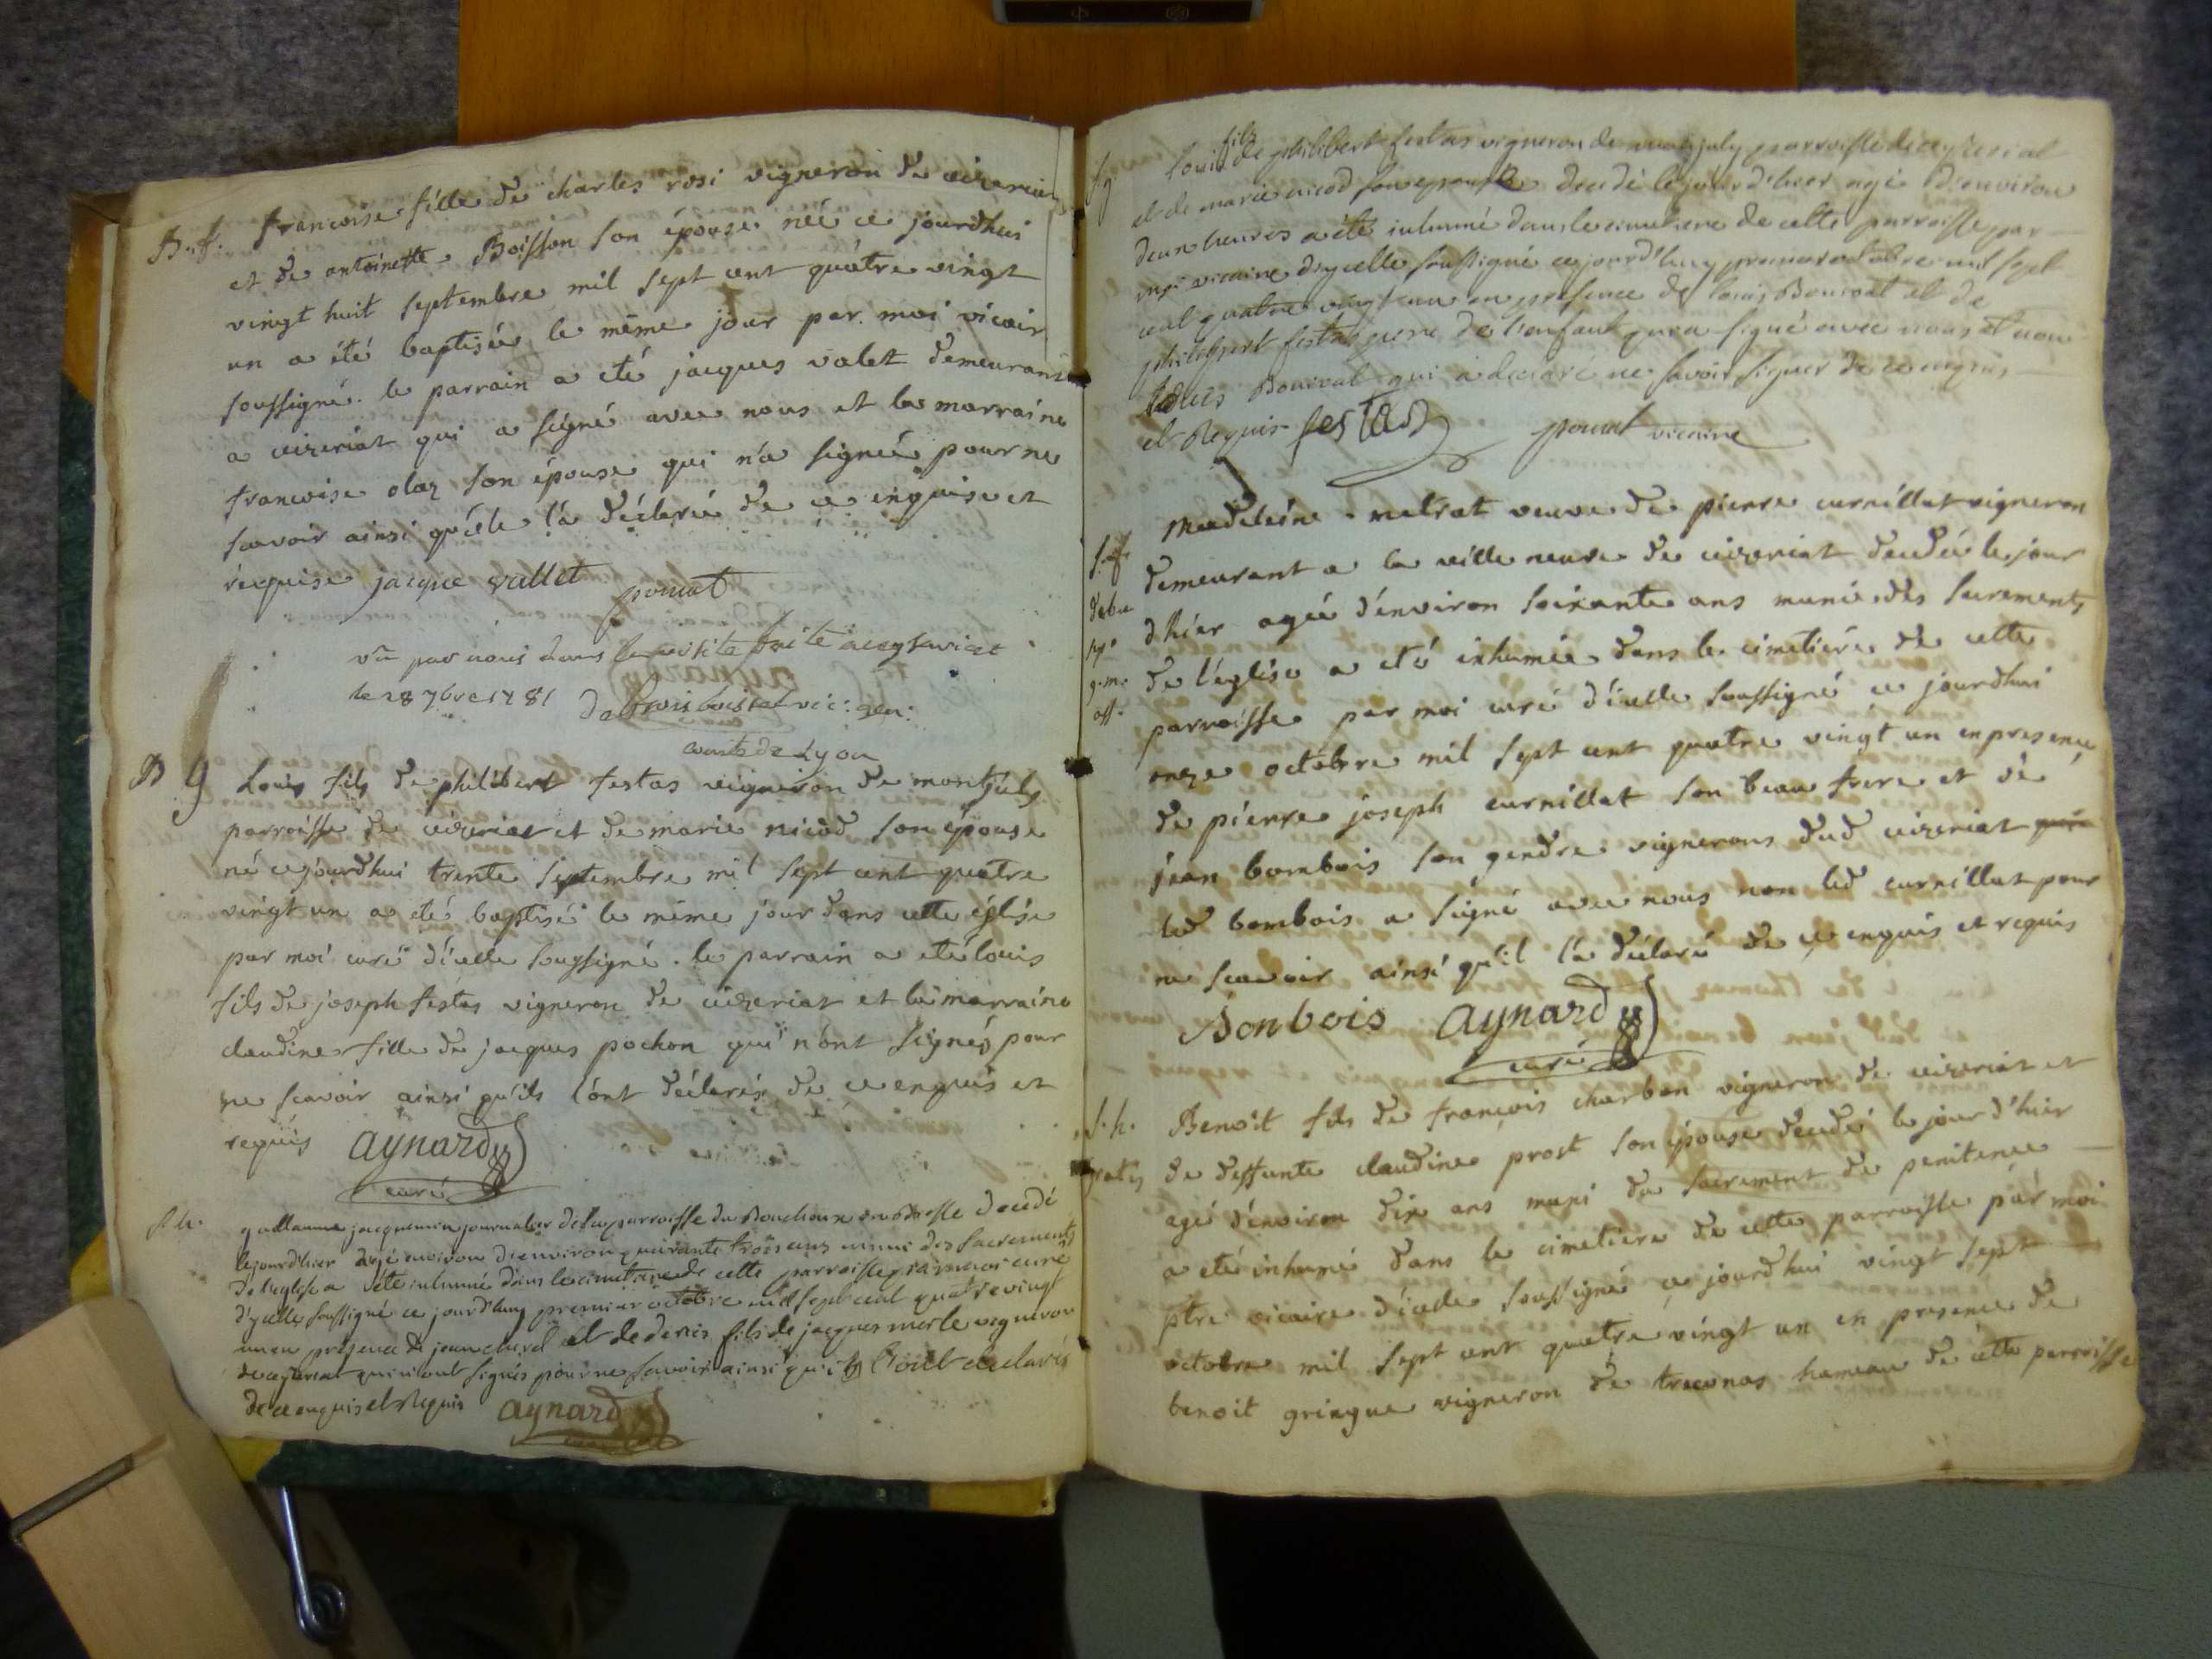 B. f. francoise fille de charles rosi vigneron de ceizeriat
et de antoinette Boisson son épouse née ce jourdhui
vingt huit septembre mil sept cent quatre vingt
un a été baptisée le même jour par moi vicair
soussigné. le parrain a eté jacques valet demeurant
a ceizeriat qui a signé avec nous et la marraine
francoise olaz son épouse qui n'a signée pour ne
scavoir ainsi qu'elle l'a déclaré de ce enquise et
requise jacque vallet
poncet
vû par nous dans la visite faite a ceyseriat
le 28 7bre 1781 vic: gen:
comte de Lyon
B g Louis fils de philibert festas vigneron de montjuly
parroisse de ceizeriat et de marie nicod son épouse
né cejourdhui trente septembre mil sept cent quatre
vingt un a eté baptisé le même jour dans cette église
par moi curé d'icelle sousigné. le parrain a eté louis
fils de joseph festas vigneron de ceizeriat et la marraine
claudine fille de jacques pochon qui n'ont signés pour
ne scavoir ainsi qu'ils l'ont déclarés de ce enquis et
requis aynard
curé
S. h. guillaume jacquemin journalier de la parroisse du Bouchoux en bresse decedé
le jour d'hier agé environ d'environ quarante trois ans muni des sacrements
de l'eglise a été inhumé dans le cimetiere de cette parroisse par moi curé
d'ycelle soussigné ce jourd'huy premier octobre mil sept cent quatre vingt
un en présence de jean et de denis fils de jacques merle vigneron
de ceyseriat qui n'ont signés pour ne savoir ainsi qu'ils l'ont declarés
de ce enquis et Requis aynard
S g Louis fils de philibert festas vigneron de montjuly parroisse de ceyzeriat
et de marie nicod son epouse decedé le jour d'hier agé d'environ
deux heures a été inhumé dans le cimetiere de cette parroisse par
moi vicaire d'ycelle soussigné ce jourd'huy premier octobre mil sept
cent quatre vingt un en presence de louis Bonivat et de
philibert festas pere de l'enfant qui a signé avec nous et non
louis Bonivat qui a declaré ne savoir signer de ce enquis
et Requis festas poncet vicaire
S. f. Madeleine metrat veuve de pierre curnillat vigneron
demeurant a la ville neuve de ceizeriat decedée le jour
d'hier agée d'environ soixante ans munie des sacrements
de l'église a eté inhumée dans le cimetière de cette
parroisse par moi curé d'icelle soussigné ce jourdhui
onze octobre mil sept cent quatre vingt un en presence
de pierre joseph curnillat son beau frere et de
jean bombois son gendre vignerons dud ceizeriat
led bombois a signé avec nous non led curnillat pour
ne scavoir ainsi qu'il l'a déclaré de ce enquis et requis
Bonbois aynard
curé
S. h. Benoit fils de françois charbon vigneron de ceizeriat et
gratis de deffunte claudine prost son épouse decedé le jour d'hier
agé d'environ dix ans muni du sacrement de penitence
a eté inhumé dans le cimetiere de cette parroisse par moi
ptre vicaire d'icelle soussigné ce jourdhui vingt sept
octobre mil sept cent quatre vingt un en presence de
benoit gringue vigneron de treconas hameau de cette parroisse